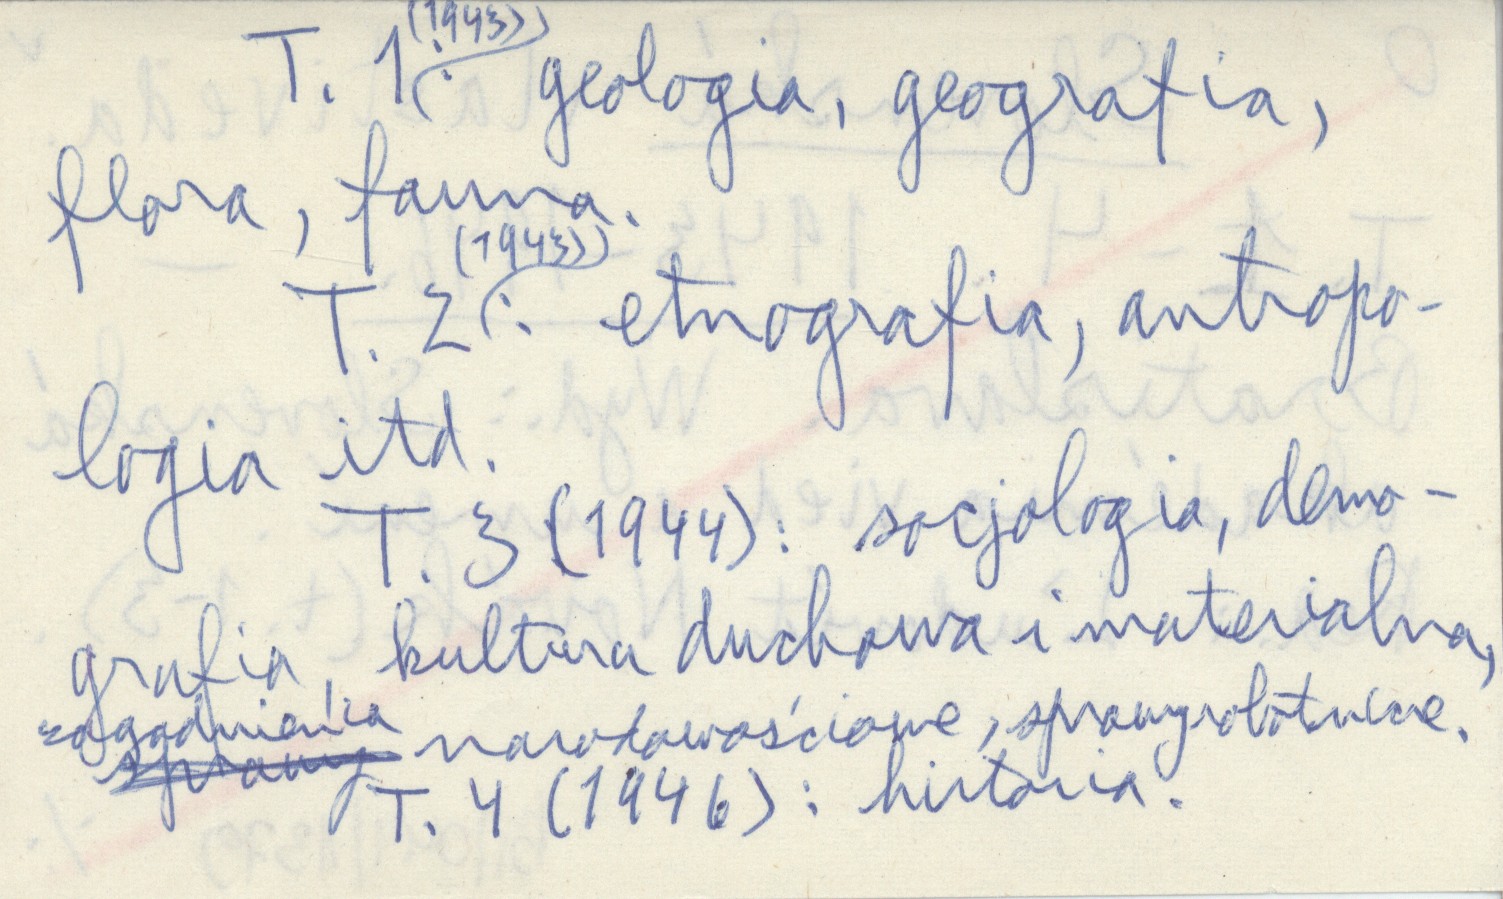 T. 1 (1943): geologia, geografia,
flora, fauna.
T. 2 (1943): etnografia, antropo-
logia itd.
T. 3 (1944): socjologia, demo-
grafia, kultura duchowa i materialna,
zagadnienia narodowościowe, sprawy robotnicze.
sprawy
T. 4 (1946): historia.